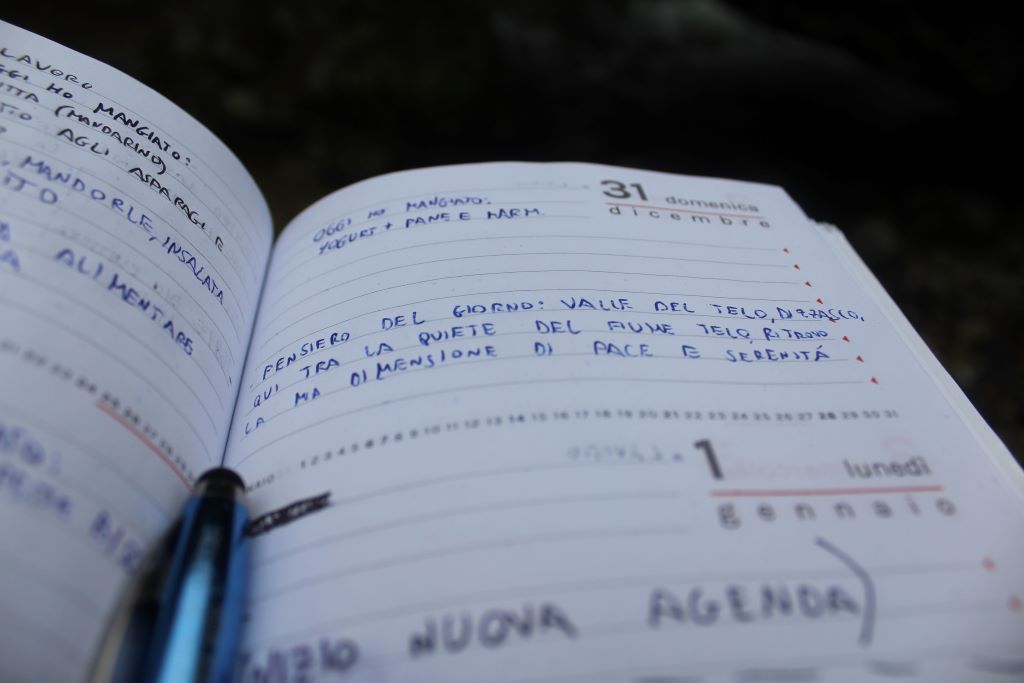 LAVORO
OGGI HO MANGIATO:
(MANDARINO)
AGLI ASPARAGI E
MANDORLE, INSALATA
ALIMENTARE
31 domenica
dicembre
OGGI HO MANGIATO:
YOGURT + PANE E MARM.
PENSIERO DEL GIORNO: VALLE DEL TELO, DIZZASCO,
QUI TRA LA QUIETE DEL FIUME TELO, RITROVO
LA MIA DIMENSIONE DI PACE E SERENITÁ
1 2 3 4 5 6 7 8 9 10 11 12 13 14 15 16 17 18 19 20 21 22 23 24 25 26 27 28 29 30 31
1 lunedì
gennaio
NUOVA AGENDA)